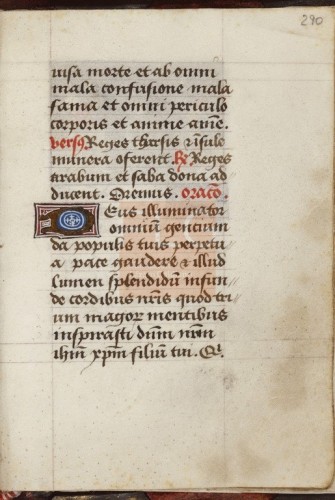 290
uisa morte et ab omni
mala confusione mala
fama et omni periculo
corporis et anime ame.
versꝰ Reges tharsis ⁊ insule
munera oferent. ℟ Reges
arabum et saba dona ad
ducent. Oremus. oracō.
Deus illuminator
omnium gencium
da populis tuis perpetu
a pace gaudere ⁊ illud
lumen splendidū infun
de cordibus nr̄is quod tri
um magor mentibus
inspirasti dūm nr̄m
ihm xpm filiū tui. Qi.